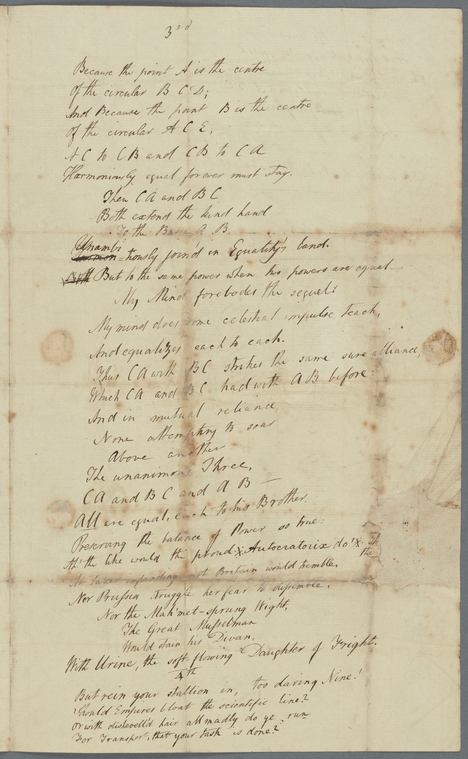 3rd
Because the point A is the centre
Of the circular B C D;
And Because the point B is the centre
Of the circular A C E,
A C to C B and C B to C A
Harmoniously equal for ever must stay.
Then C A and B C
Both extend the kind hand
To the Base A B
Unambi
-tiously join'd in Equality's band.
But to the same power when two powers are equal
My Mind forebodes the sequel:
My mind does some celestial impulse teach,
And equalizes each to each.
Thus C A with B C strikes the same sure alliance,
Which C A and B C had with A B before
And in mutual reliance,
None attempting to soar
Above another
The unanimous Three,
C A and B C and A B —
All are equal, each to his Brother
Preserving the balance of Power so true:
Ah! the like would the proud x Autocratoix do! x
At taxes impending not Britain would tremble,
Nor Prussia struggle her fear to dissemble,
Nor the Mah'met-sprung Wight,
The Great Mussulman
Would stain his Divan,
With Urine, the soft-flowing Daughter of Fright.
4th
But rein your stallion in, too daring Nine!
Should Empires bloat the scientific line?
Or with dishevell'd hair all madly do ye run
For Transport, that your task is done?